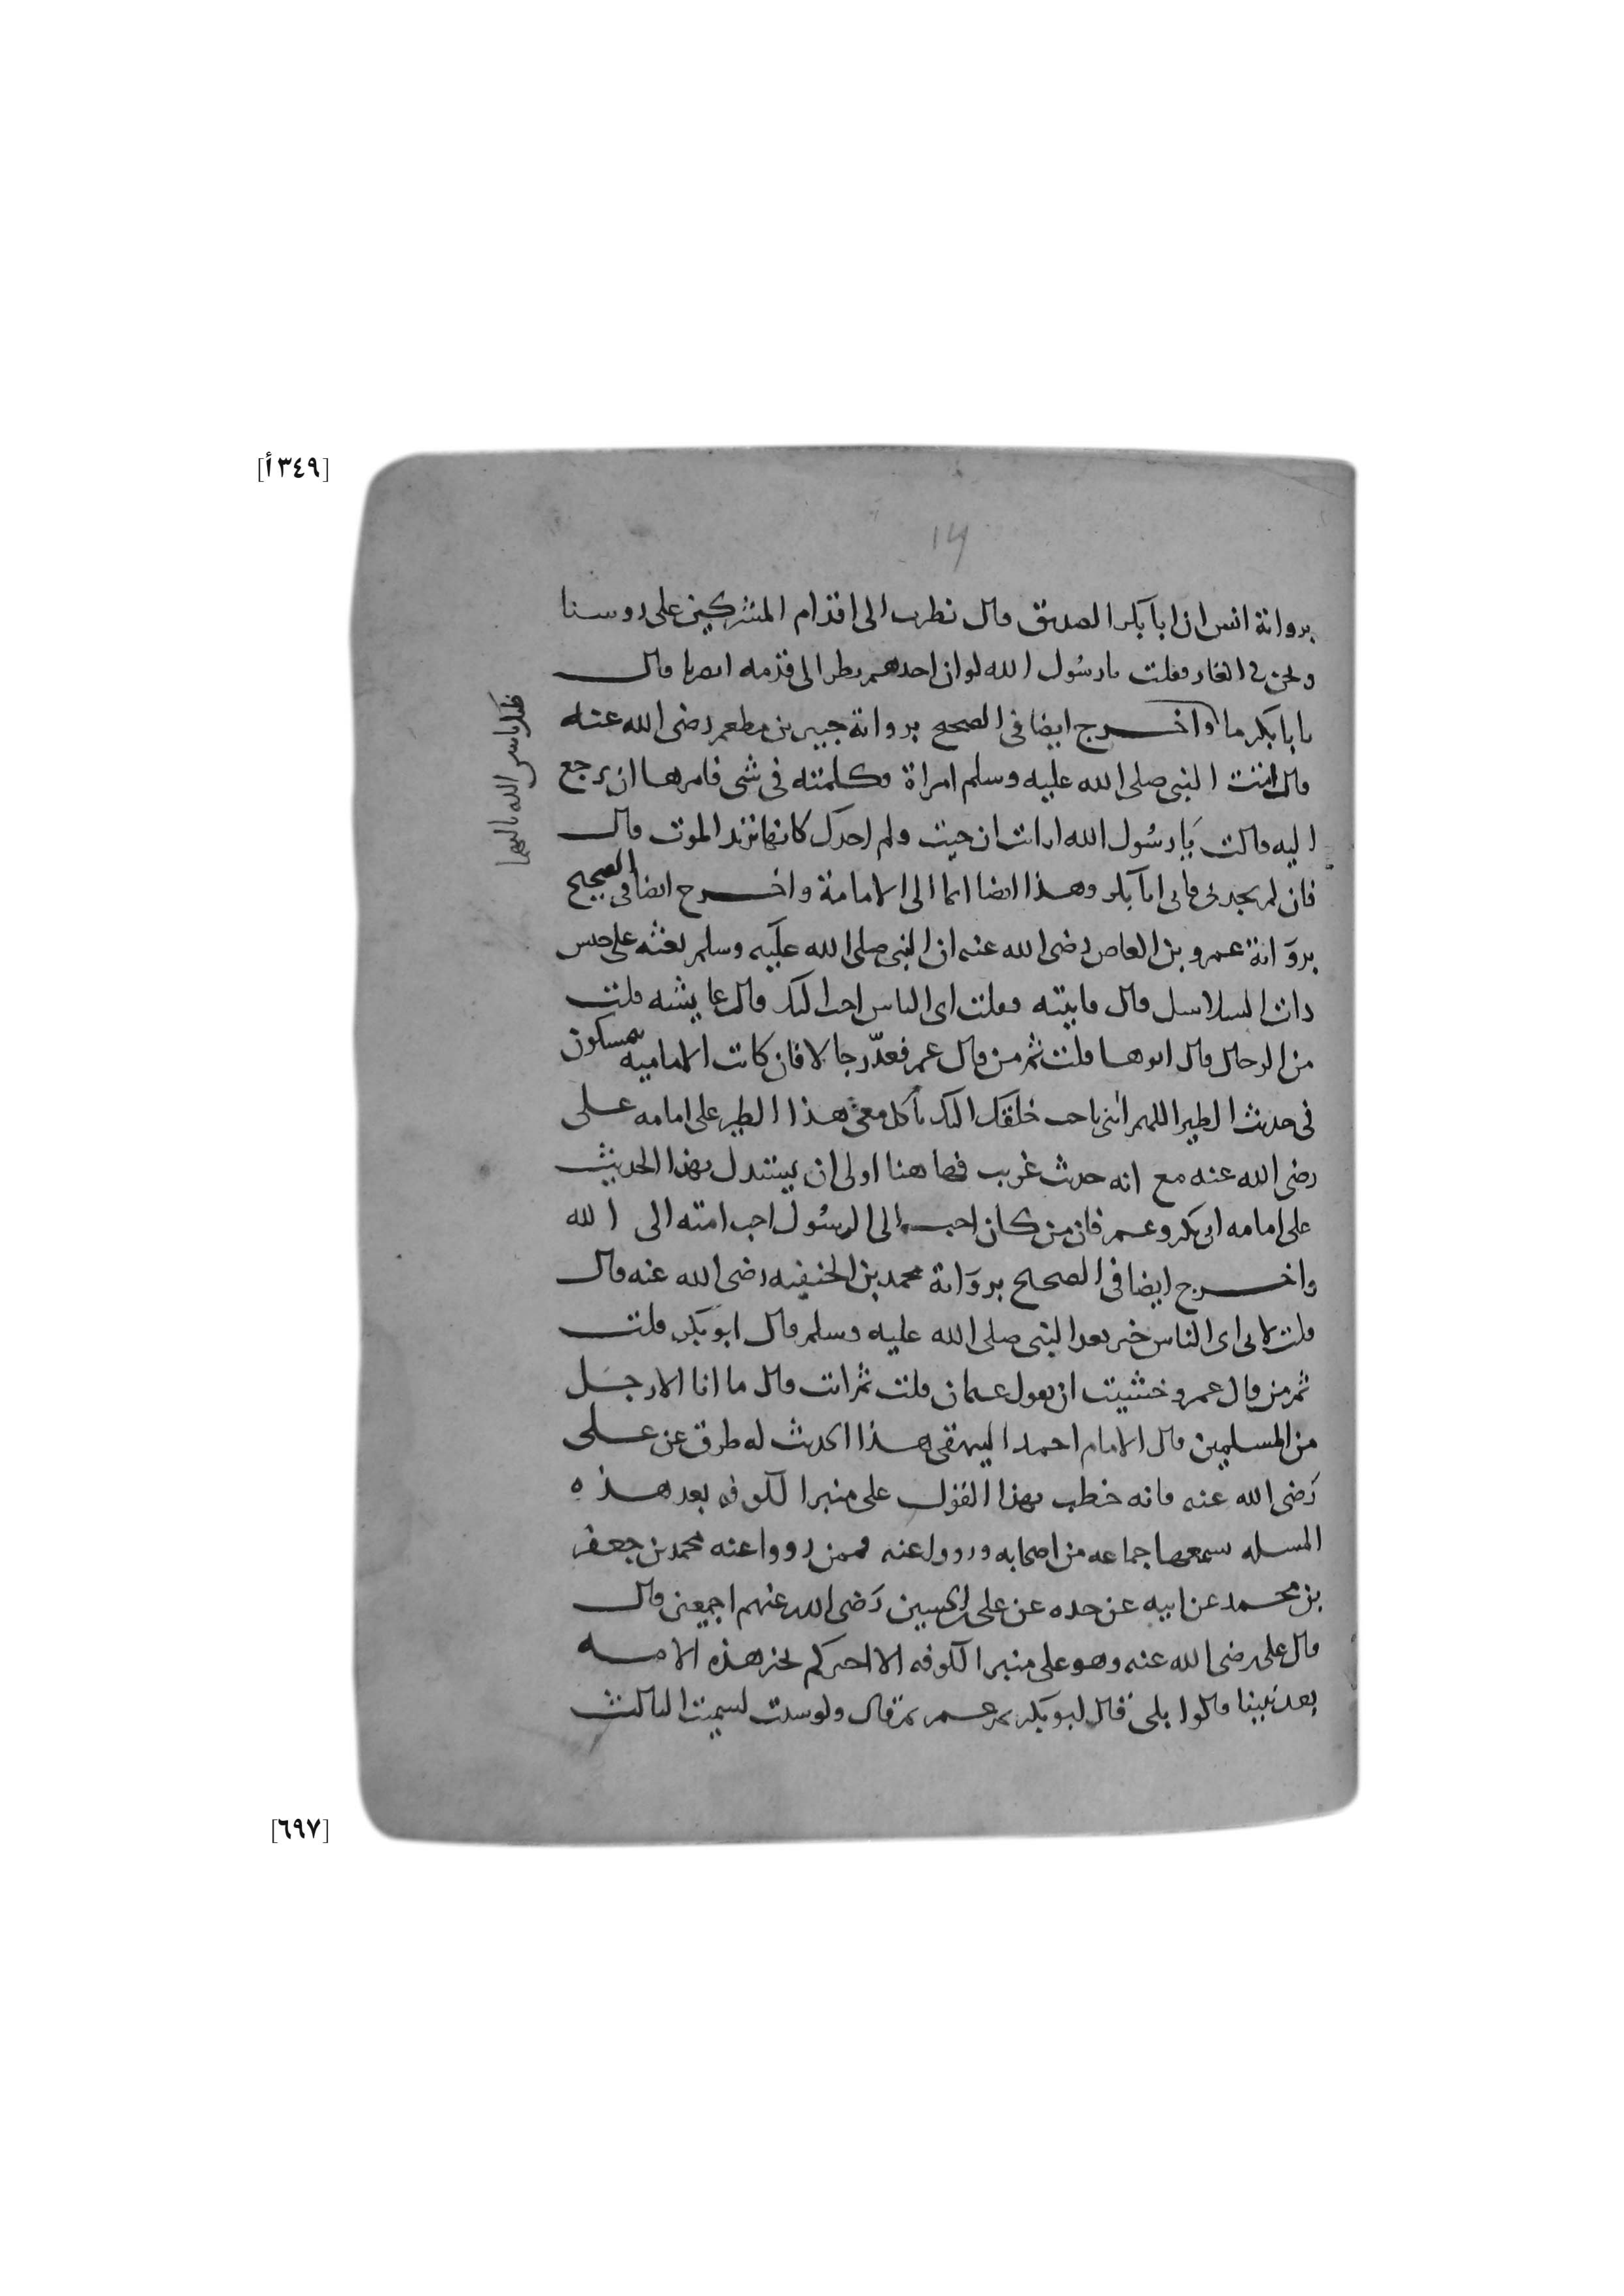 [٣٤٩أ]
برواية انس ان ابا بكر الصديق قال نظرت الى اقدام المشركين على روسنا
ونحن في الغار فقلت يا رسول الله لو ان احدهم نظر الى قدمه ابصرنا قال
يا ابا بكر ما واخرج ايضا في الصحيح برواية جبير بن مطعم رضى الله عنه
ظنك باثنين الله ثالثهما
قال اتت النبى صلى الله عليه وسلم امراة وكلمته في شى فامرها ان يرجع
اليه قالت يا رسول الله ارايت ان جيت ولم اجدك كانها تريد الموت قال
فان لم تجديني فاتي ابا بكر وهذا ايضا ايما الى الامامة واخرج ايضا في الصحيح
برواية عمرو بن العاص رضى الله عنه ان النبى صلى الله عليه وسلم بعثه على جيش
ذات السلاسل قال فاتيته فقلت اى الناس احب اليك قال عايشه قلت
من الرجال قال ابوها قلت ثم من قال عمر فعدّ رجالا فان كانت الاماميه يتمسكون
فى حديث الطير اللهم ائتني باحب خلقك اليك ياكل معى هذا الطير على امامه على
رضى الله عنه مع انه حديث غريب فها هنا اولى ان يستدل بهذا الحديث
على امامه ابى بكر وعمر فان من كان احب الى الرسول احب امته الى الله
واخرج ايضا في الصحيح برواية محمد بن الحنفيه رضى الله عنه قال
قلت لابى اى الناس خير بعد النبى صلى الله عليه وسلم قال ابو بكر قلت
ثم من قال عمر وخشيت ان يقول عثمان قلت ثم انت قال ما انا الا رجل
من المسلمين قال الامام احمد البيهقى هذا الحديث له طرق عن على
رضى الله عنه فانه خطب بهذا القول على منبر الكوفه بعد هذه
المسله سمعها جماعه من اصحابه ورووا عنه فممن رووا عنه محمد بن جعفر
بن محمد عن ابيه عن جده عن على بن الحسين رضى الله عنهم اجمعين قال
قال على رضى الله عنه وهو على منبر الكوفه الا اخبركم بخير هذه الامه
بعد نبينا قالوا بلى قال ابو بكر ثم عمر ثم قال ولو شيت لسميت الثالث
[٦٩٧]